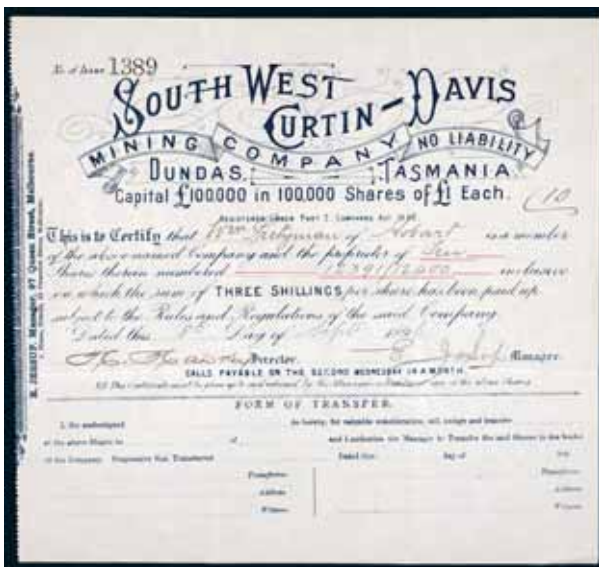 No. of Issue 1389
SOUTH WEST
CURTIN-DAVIS
MINING COMPANY NO LIABILITY
DUNDAS. TASMANIA
Capital £100,000 in 100,000 Shares of £1 Each.
10
This is to Certify that Wm of Hobart is a member
of the above named Company and the proprietor of Ten
Shares therein numbered inclusive
on which the sum of THREE SHILLINGS per share has been paid up
subject to the Rules and Regulations of the said Company.
Dated this Day of
Director. Manager.
CALLS PAYABLE ON THE SECOND WEDNESDAY IN A MONTH.
FORM OF TRANSFER.
I, the undersigned do hereby, for valuable consideration, sell, assign and transfer
of the above Shares to of and I authorise the Manager to Transfer the said Shares in the books
of the Company. Progressive Nos. Transferred Dated this day of
Transferor Transferee
Address Address
Witness Witness
E. JESSUP, Manager, 97 Queen Street, Melbourne.